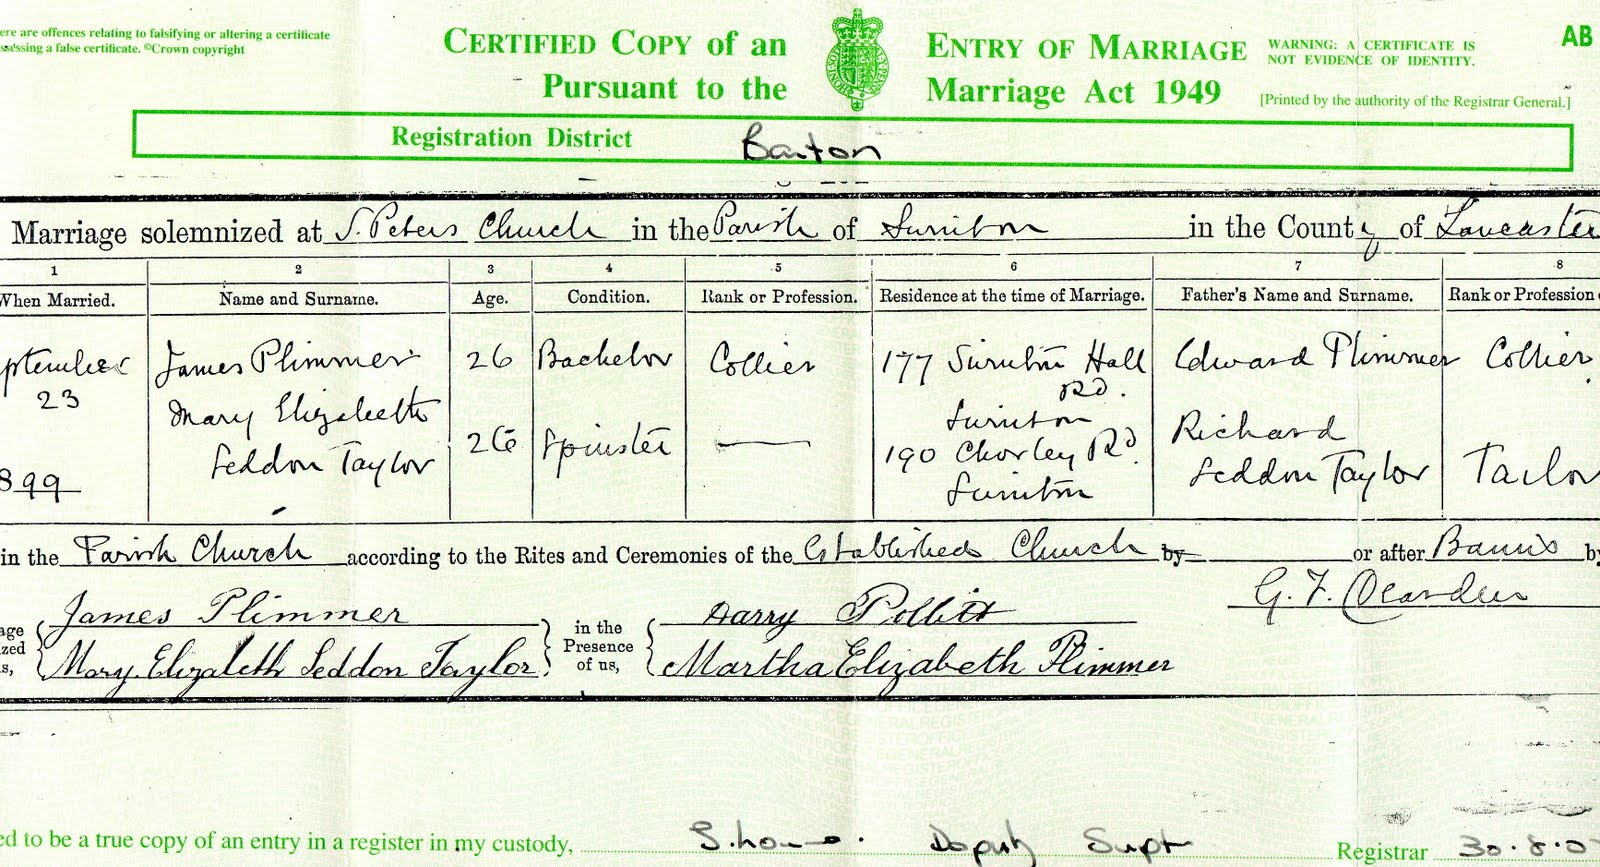 ere are offences relating to falsifying or altering a certificate
ssessing a false certificate. ©Crown copyright
CERTIFIED COPY of an ENTRY OF MARRIAGE
Pursuant to the Marriage Act 1949
WARNING: A CERTIFICATE IS
NOT EVIDENCE OF IDENTITY.
AB
[Printed by the authority of the Registrar General.]
Registration District Barton
Marriage solemnized at S. Peters Church in the Parish of Swinton in the County of Lancaster
1 2 3 4 5 6 7 8
When Married. Name and Surname. Age. Condition. Rank or Profession. Residence at the time of Marriage. Father's Name and Surname. Rank or Profession
ptember 23 899
James Plimmer 26 Bachelor Collier 177 Swinton Hall Rd. Swinton Edward Plimmer Collier
Mary Elizabeth Seddon Taylor 26 Spinster — 190 Chorley Rd. Swinton Richard Seddon Taylor Tailor
in the Parish Church according to the Rites and Ceremonies of the Established Church by or after Banns by
James Plimmer
Mary Elizabeth Seddon Taylor
age
zed
s,
in the
Presence
of us,
Harry Pollitt
Martha Elizabeth Plimmer
G. F.
ed to be a true copy of an entry in a register in my custody, Deputy Supt Registrar 30.8.0